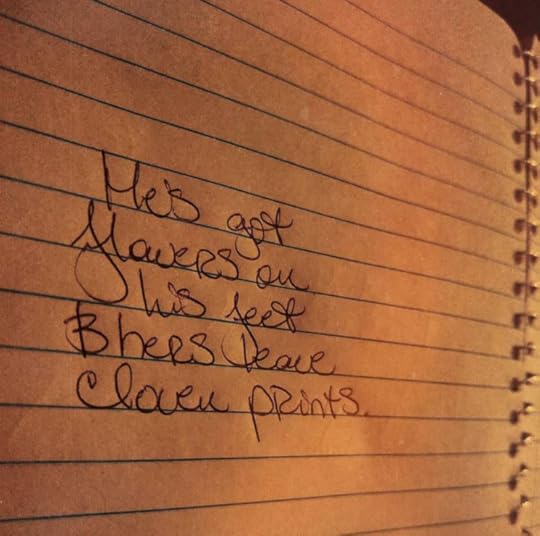 He's got
flowers on
his feet
& hers leave
Cloven prints.